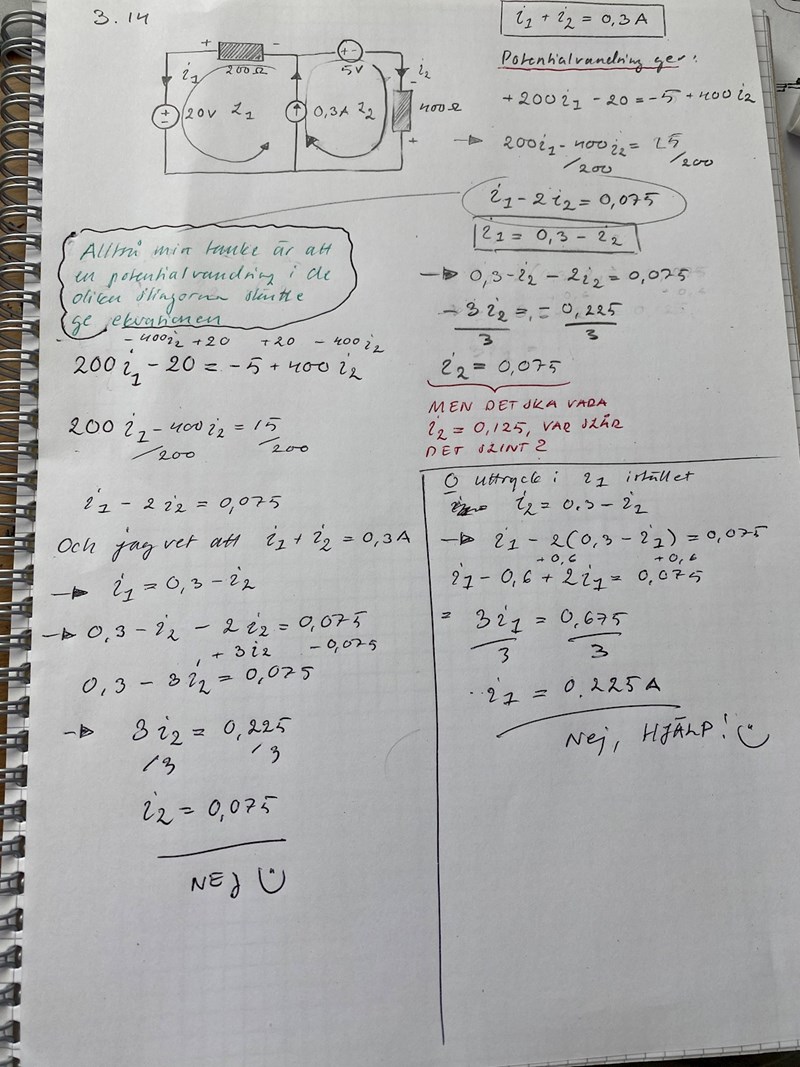 3.14
i1 + i2 = 0,3 A
+ -
200Ω
i1
+ -
5V
i2
-
400Ω
+
+
-
20V
I1
0,3A
I2
Potentialvandring ger:
+200i1 - 20 = -5 + 400i2
→ 200i1 - 400i2 = 15
/200 /200
i1 - 2i2 = 0,075
i1 = 0,3 - i2
→ 0,3 - i2 - 2i2 = 0,075
-3i2 = - 0,225
3 3
i2 = 0,075
MEN DET SKA VARA
i2 = 0,125, VAR SLÅR
DET SLINT?
Alltså min tanke är att
en potentialvandring i de
olika slingorna skulle
ge ekvationen
-400i2 +20 +20 -400i2
200i1 - 20 = -5 + 400i2
200i1 - 400i2 = 15
/200 /200
i1 - 2i2 = 0,075
Och jag vet att i1 + i2 = 0,3A
→ i1 = 0,3 - i2
→ 0,3 - i2 - 2i2 = 0,075
+ 3i2 - 0,075
0,3 - 3i2 = 0,075
→ 3i2 = 0,225
/3 /3
i2 = 0,075
NEJ
O uttryck i i1 istället
i2 = 0,3 - i1
→ i1 - 2(0,3 - i1) = 0,075
+0,6 +0,6
i1 - 0,6 + 2i1 = 0,075
= 3i1 = 0,675
3 3
i1 = 0.225A
Nej, HJÄLP!